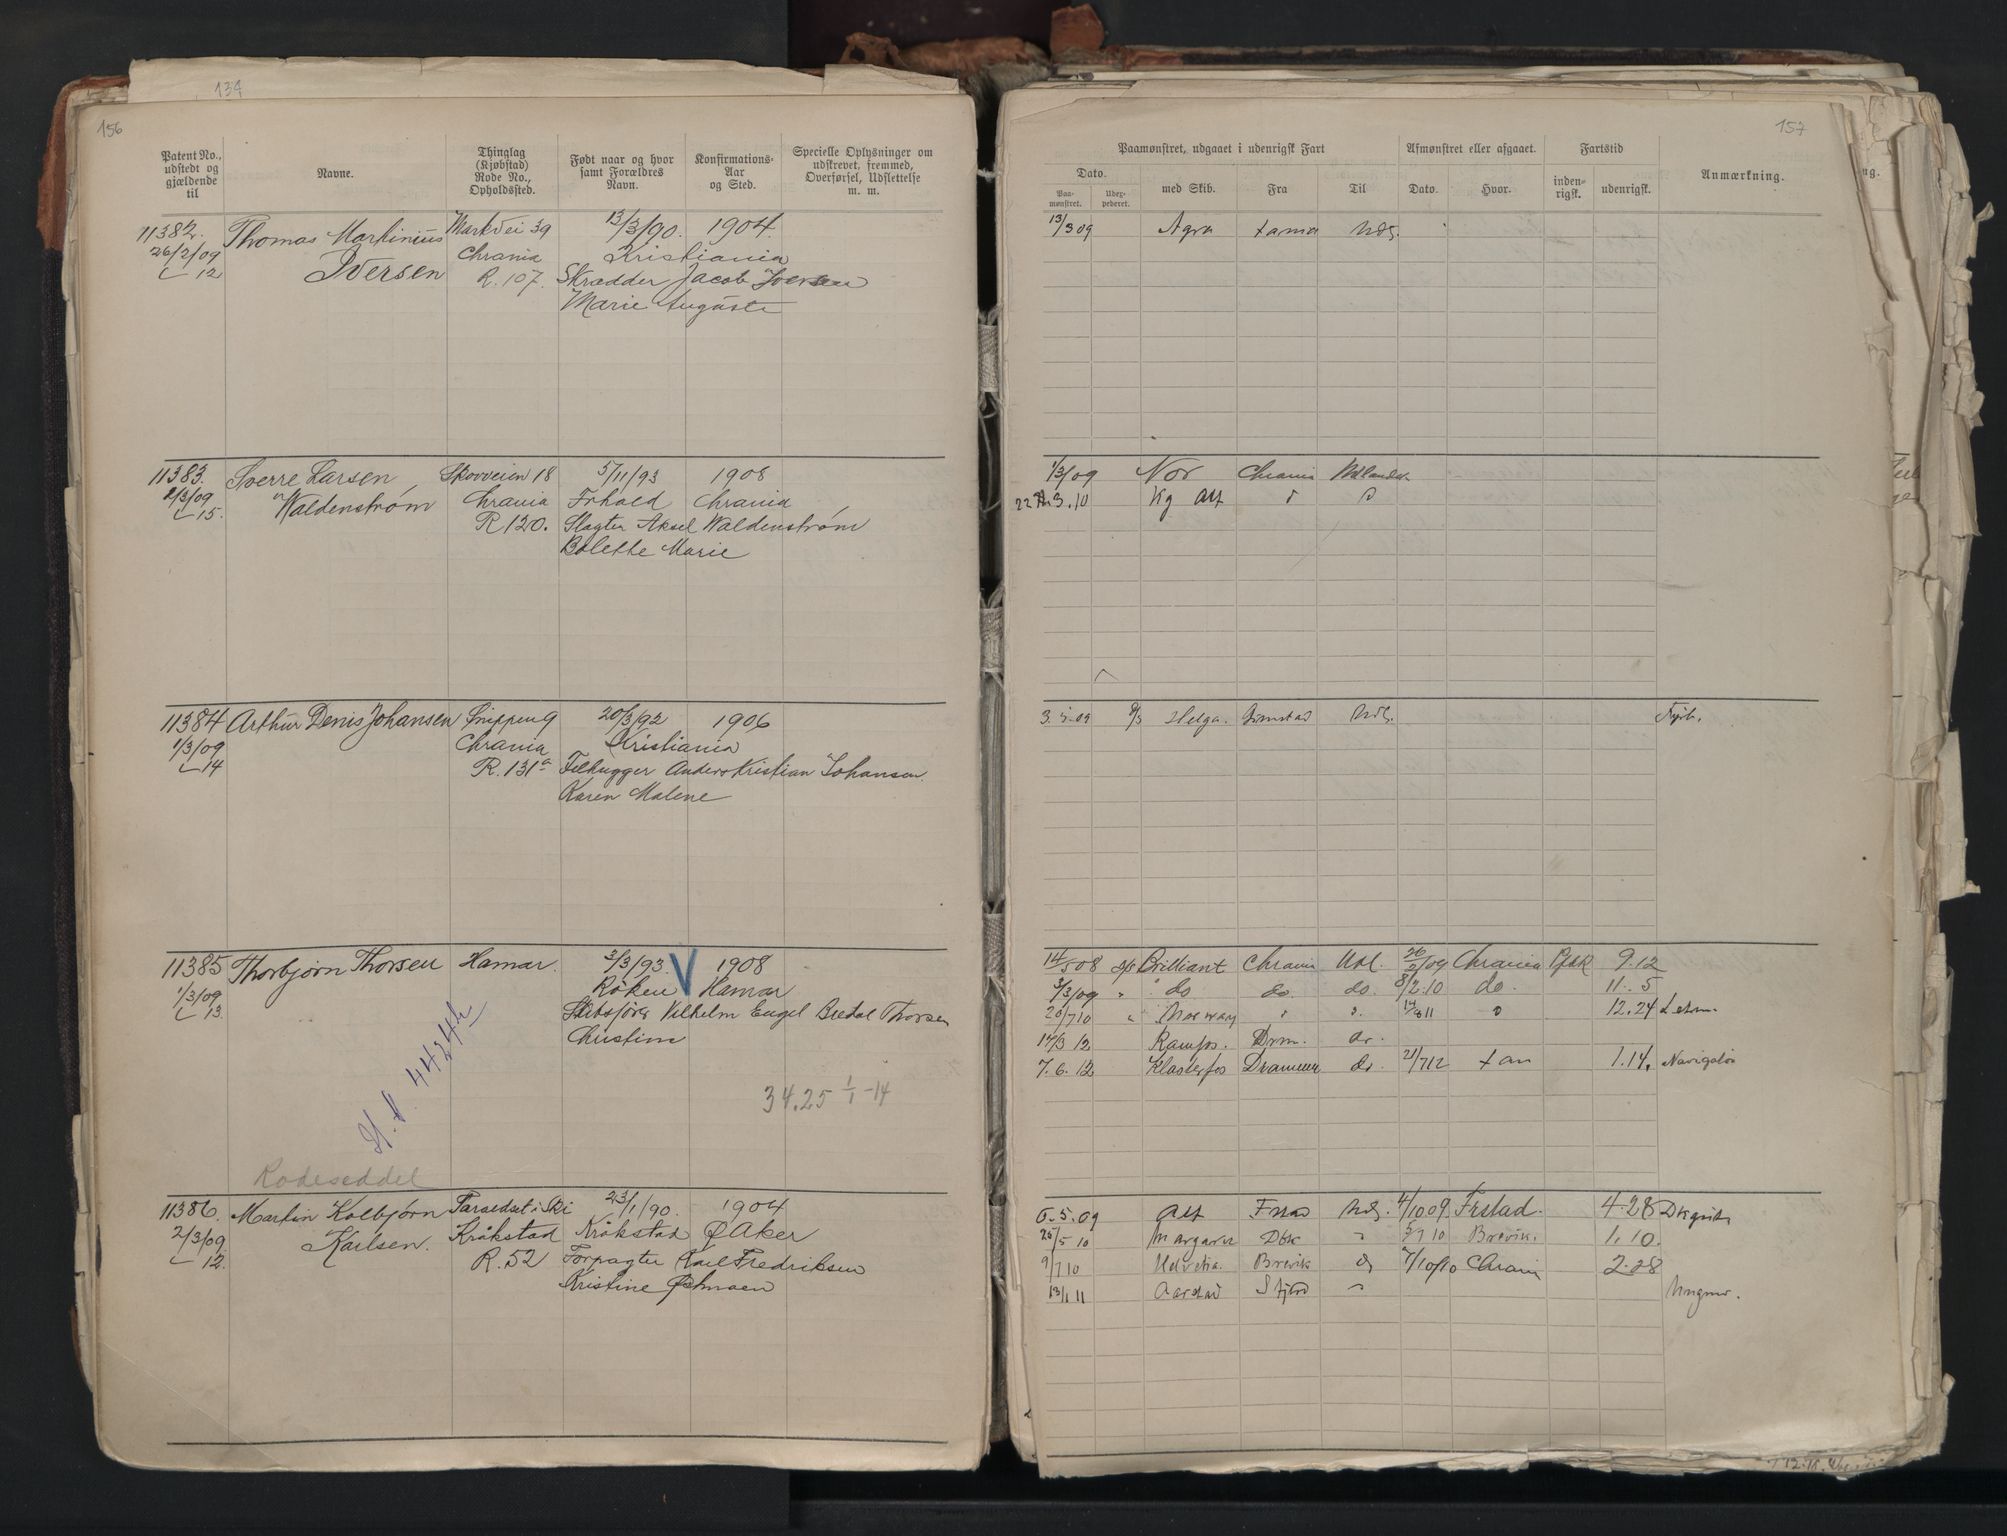 134
156
Patent No., udstedt og gjældende til
Navne.
Thinglag (Kjøbstad) Rode No., Opholdssted.
Født naar og hvor samt Forældres Navn.
Konfirmations- Aar og Sted.
Specielle Oplysninger om udskrevet, fremmed, Overførsel, Udslettelse m. m.
11382. Thomas Martinius Markvei 39 13/3/90. 1904.
26/2/09 Iversen Chrania Kristiania
12 R. 107. Skrædder Jacob Iversen
Marie Auguste
11383. Sverre Larsen Skovveien 18 5/11/93 1908
2/3/09 Waldenstrøm Chrania Frhald Chrania
15. R 120. Slagter Aksel Waldenstrøm
Bolette Marie
11384 Arthur Denis Johansen Snippen 9 20/3/92 1906
1/3/09 Chrania Kristiania
14 R. 131a Filhugger Anders Kristian Johansen
Karen Malene
11385 Thorbjørn Thorsen Hamar. 3/3/93. V 1908
1/3/09. Røken Hamar
13. Skibsfører Vilhelm Engel Bredal Thorsen
Christine
4424
34.25 1/1-14
Rodeseddel
11386. Martin Kolbjørn i Ski 23/1/90. 1904
2/3/09. Karlsen. Kråkstad Kråkstad Ø Aker
12. R. 52 Forpagter Karl Fredriksen
Kristine
157
Paamønstret, udgaaet i udenrigsk Fart
Afmønstret eller afgaaet.
Fartstid
Anmærkning.
Dato.
Paa- mønstret.
Udex- pederet.
med Skib.
Fra
Til
Dato.
Hvor.
inden- rigsk.
udenrigsk.
13/3 09 Agra Udl.
1/3/09 Nor Chrania Udlandet
3.10 Kg Alf
3.3.09 9/3 Helga. Grimstad Udl. Fyrb.
14/5 08 Brilliant Chrania Udl. 26/2/09 Chrania 9.12
3/3/09 " do do. do. 8/2.10 do. 11. 5
20/7 10 " Norway 11 12.24
17/3 12 Ramfos. Drm. do.
7.6.12 Klosterfos Drammen do. 21/7 12 1.14.
6.5.09 Alf Frstad Udl. 4/10 09. Frstad. 4.28
25/5 10 Dbk 5/7 10 Brevik. 1.10.
9/7 10 Helvetia. Brevik 7/10/10 Chrania 2.28
13/1 11 Aarstad Ungmd.